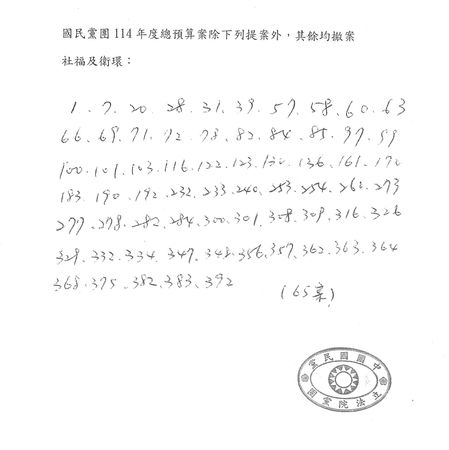 國民黨團 114 年度總預算案除下列提案外，其餘均撤案
社福及衛環：
1、7、20、28、31、39、57、58、60、63
66、69、71、72、78、82、84、85、97、99
100、101、103、116、122、123、130、136、161、170
183、190、192、232、233、240、253、254、262、273
277、278、282、284、300、301、308、309、316、326
329、332、334、347、348、356、357、362、363、364
368、375、382、383、392 （65案）
中國國民黨
立法院黨團